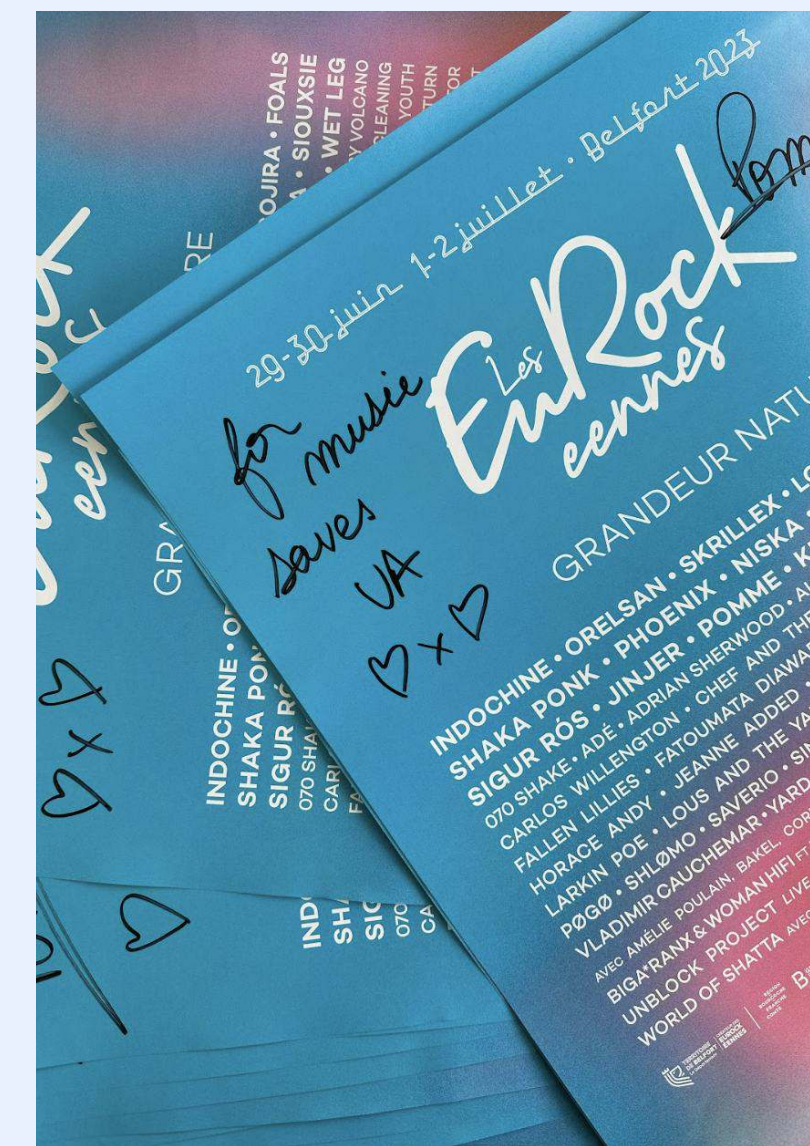 29-30 juin 1-2 juillet • Belfort 2023
Les
EuRock
eennes
for
music
saves
UA
GRANDEUR
INDOCHINE • ORELSAN • SKRILLEX •
SHAKA PONK • PHOENIX • NISKA
SIGUR RÓS • JINJER • POMME •
070 SHAKE • ADÉ • ADRIAN SHERWOOD •
CARLOS WILLENGTON • CHEF AND THE
FALLEN LILLIES • FATOUMATA
HORACE ANDY • JEANNE ADDED
LARKIN POE • LOUS AND THE
PØGØ • SHLØMO • SAVERIO •
VLADIMIR CAUCHEMAR •
AVEC AMÉLIE POULAIN, BAKEL,
BIGA*RANX & WOMAN HIFI FT
UNBLOCK PROJECT LIVE
WORLD OF SHATTA AVEC
TERRITOIRE
DE BELFORT
• FOALS
• SIOUXSIE
• WET LEG
VOLCANO
CLEANING
YOUTH
INDOCHINE •
SHAKA
SIGUR
070